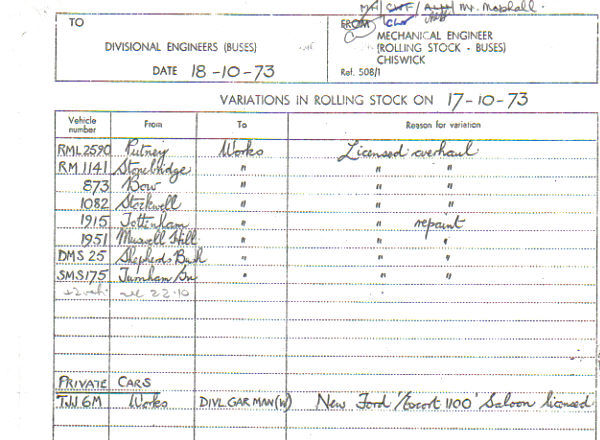 Mr. Marshall.
TO
FROM
DIVISIONAL ENGINEERS (BUSES)
MECHANICAL ENGINEER
(ROLLING STOCK - BUSES)
CHISWICK
DATE 18-10-73
Ref. 508/1
VARIATIONS IN ROLLING STOCK ON 17-10-73
Vehicle number From To Reason for variation
RML 2590 Putney Works Licensed overhaul
RM 1141 Stonebridge " " "
873 Bow " " "
1082 Stockwell " " "
1915 Tottenham " " repaint
1951 Muswell Hill " " "
DMS 25 Shepherds Bush " " "
SMS 175 Turnham Gn " " "
22-10
PRIVATE CARS
TJJ 6M Works DIVL. GAR MAN (W) New Ford 'Escort 1100' Saloon licensed